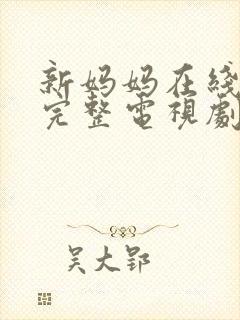 新妈妈在线
完整电视剧
吴大郢